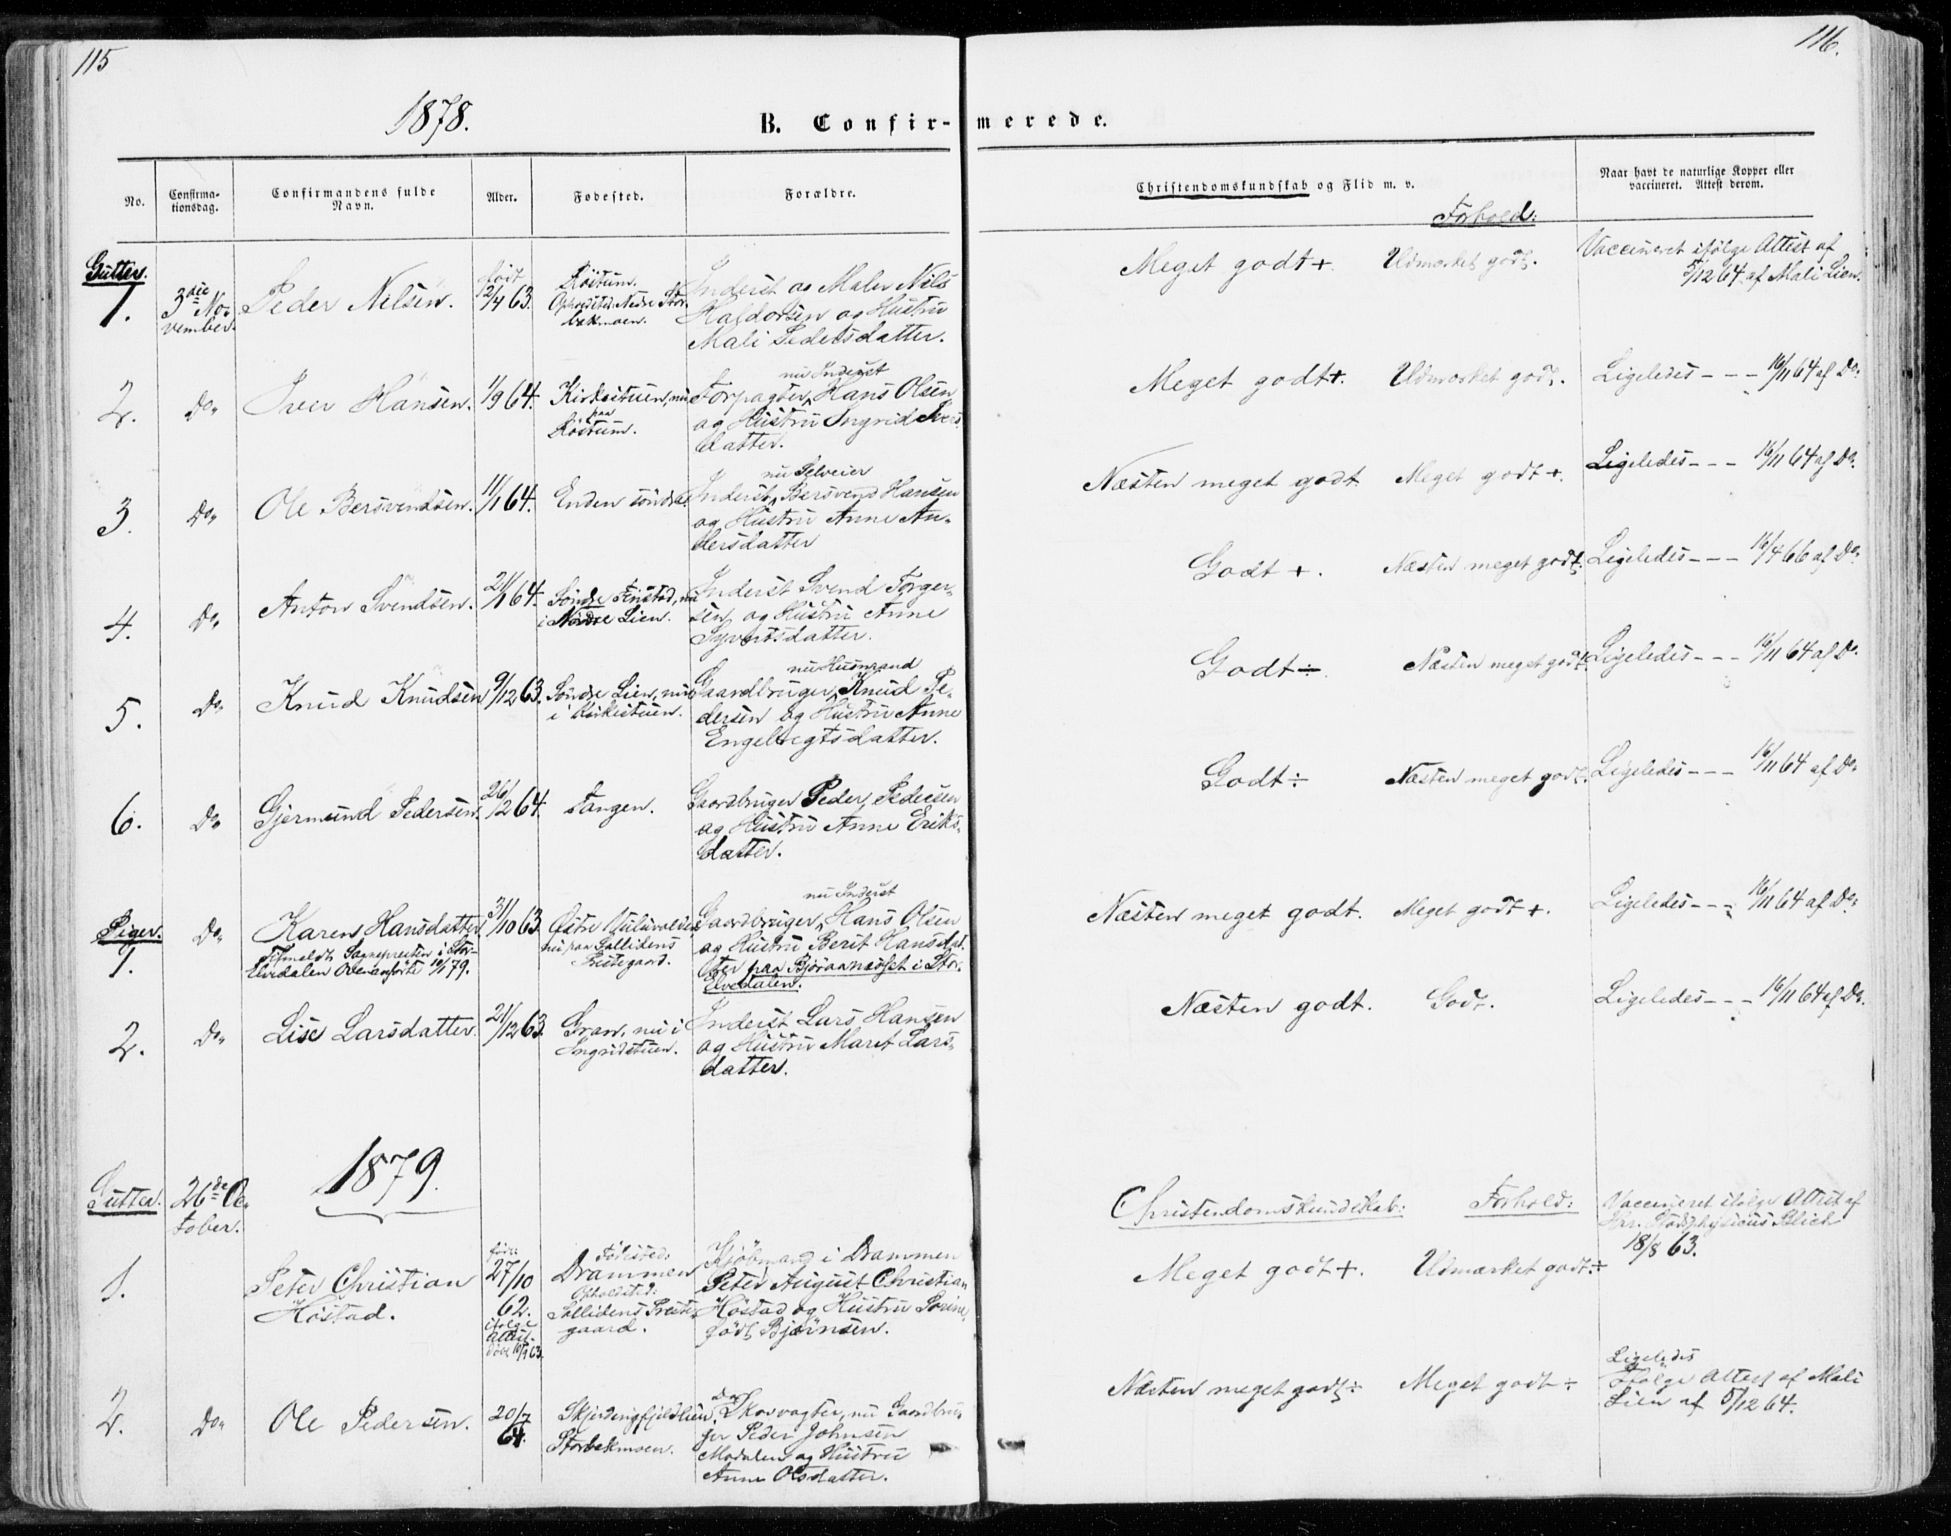 115
116.
1878.
B. Confir-merede.
No.
Confirma-
tionsdag.
Confirmandens fulde
Navn.
Alder.
Fødested.
Forældre.
Christendomskundskab og Flid m. v.
Forhold:
Naar havt de naturlige Kopper eller
vaccineret. Attest derom.
Gutter.
1.
3die No-
vember.
Peder Nilsen.
født
12/4 63.
Röstum.
Opholdsted: Nedre Stor-
bækmoen.
Inderst og Maler Nils
Haldorsen og Hustru
Mali Pedersdatter.
Meget godt +
Udmærket godt.
Vaccineret ifölge Attest af
5/12 64. af Mali Lien.
2.
Do
Iver Hansen.
1/9 64.
Kirkestuen, nu
paa
Röstum.
nu Inderst
Forpagter Hans Olsen
og Hustru Ingrid Ivers-
datter.
Meget godt +.
Udmærket godt.
Ligeledes - - - 16/11 64 af Do
3.
Do
Ole Bersvendsen.
11/1 64.
Enden söndre
nu Selveier
Inderst Bersvend Hansen
og Hustru Anne An-
dersdatter
Næsten meget godt.
Meget godt +.
Ligeledes - - - 16/11 64 af Do
4.
Do
Anton Svendsen.
21/1 64.
Söndre Finstad, nu
i Nordre Lien.
Inderst Svend Torger-
sen og Hustru Anne
Syversdatter.
Godt +.
Næsten meget godt.
Ligeledes - - - 16/4 66 af Do
5.
Do
Knud Knudsen
9/12 63.
Söndre Lien, nu
i Kirkestuen.
nu Husmand
Gaardbruger Knud Pe-
dersen og Hustru Anne
Engebregtsdatter.
Godt ÷
Næsten meget godt.
Ligeledes - - - 16/11 64 af Do
6.
Do
Gjermund Pedersen.
26/2 64.
Tangen.
Gaardbruger Peder Pedersen
og Hustru Anne Eriks-
datter.
Godt ÷
Næsten meget godt.
Ligeledes - - - 16/11 64 af Do
Piger.
1.
Do
Karen Hansdatter
Tilmeldt Sognepresten i Stor-
Elvedalen 10/1 79.
31/10 63.
nu paa Sollidens
Prestegaard.
nu Inderst
Gaardbruger Hans Olsen
og Hustru Berit Hansdat-
ter paa Björaanæsset i Stor-
Elvedalen.
Næsten meget godt.
Meget godt +.
Ligeledes - - - 16/11 64 af Do
2.
Do
Lise Larsdatter.
21/12 63
Gran, nu i
Ingridstuen.
Inderst Lars Hansen
og Hustru Maret Lars-
datter.
Næsten godt.
Godt.
Ligeledes - - - 16/11 64 af Do
1879.
Gutter.
26de Oc-
tober.
Christendomskundskab:
Forhold:
Vaccineret ifölge Attest af
Hr. Stadsphysicus Blich
18/8 63.
1.
Peter Christian
Höstad.
født
27/10
62.
ifolge
Attest.
döbt 16/9 63.
Födested:
Drammen
Opholdsted:
Sollidens Preste-
gaard.
Kjöbmand i Drammen
Peter August Christian
Höstad og Hustru Sorine,
født Bjørnsen.
Meget godt +.
Udmærket godt ÷
2.
Do
Ole Pedersen.
20/7
64.
Storbækmoen.
Skovvogter, nu Gaardbru-
ger Peder Johnsen
Modalen og Hustru
Anne Olsdatter.
Næsten meget godt ÷
Meget godt ÷
Ligeledes
Ifölge Attest af Mali
Lien af 5/12 64.